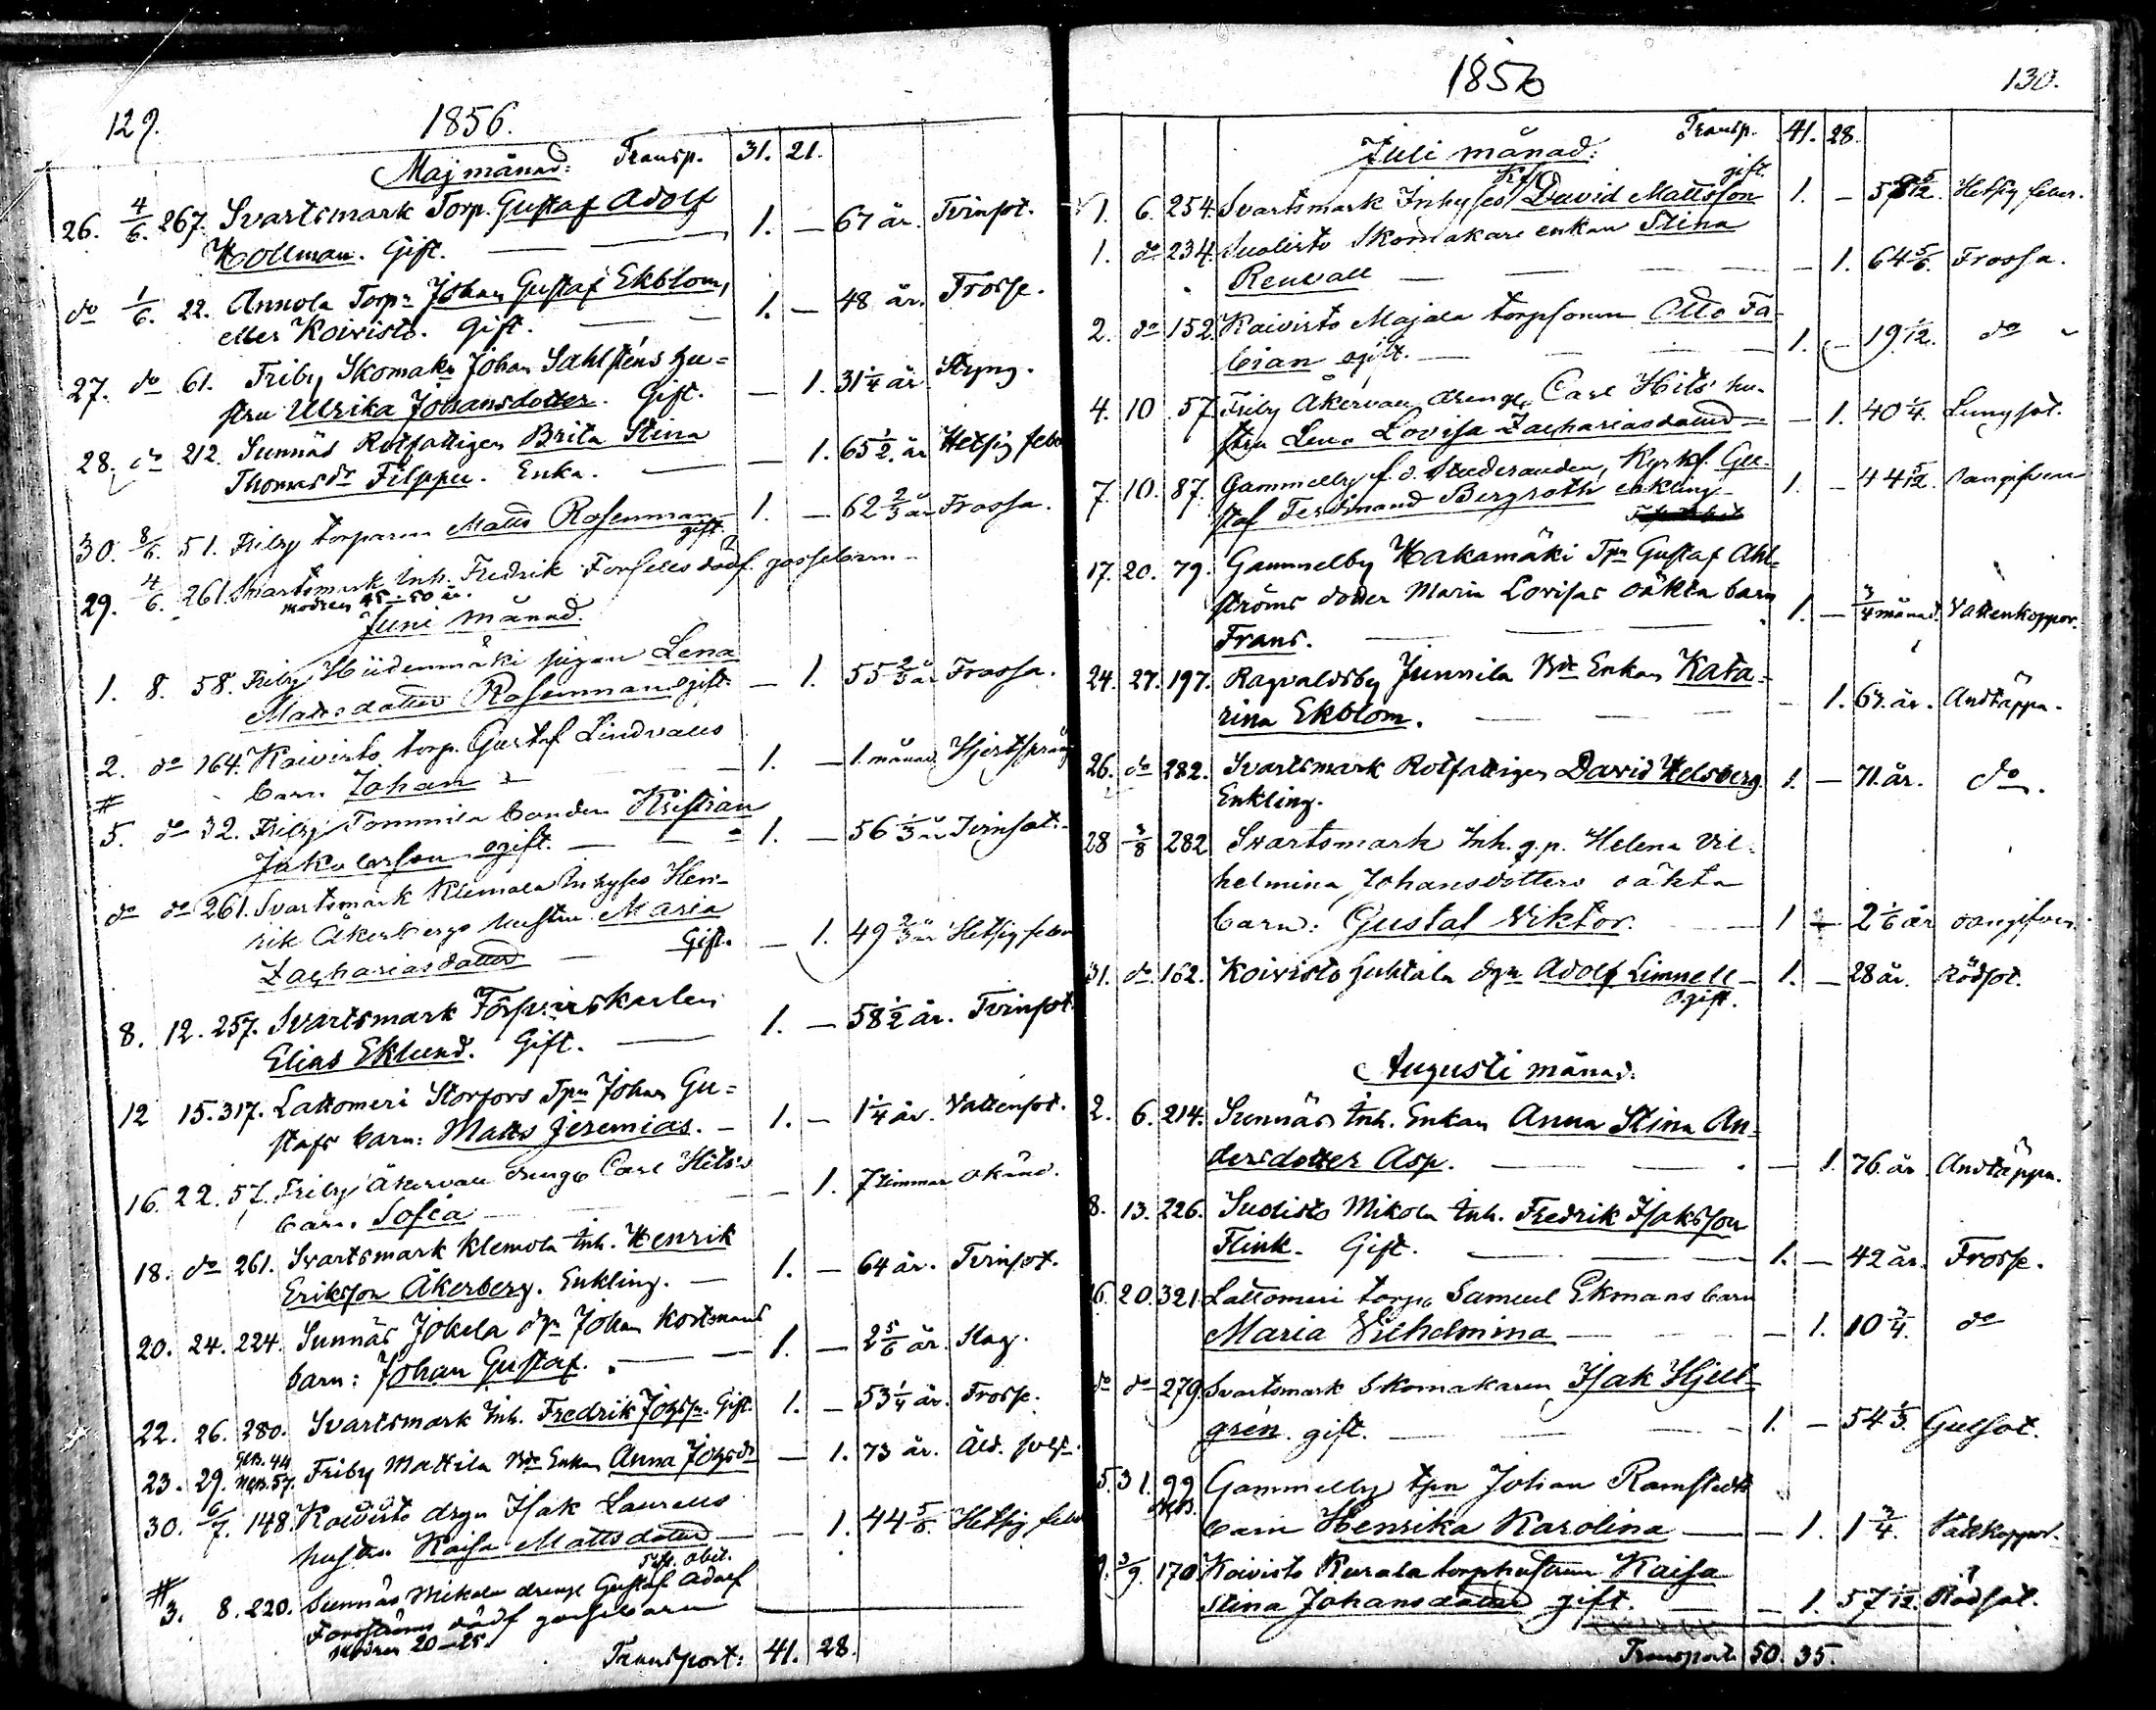 129.
1856.
Maj månad: Transp. 31. 21.
26. 4/6. 267. Svartsmark Torp. Gustaf Adolf
Hollman. Gift. 1. — 67 år. Tvinsot.
do 1/6. 22. Annola Torpn Johan Gustaf Ekblom,
eller Koivisto. Gift. 1. — 48 år. Frosse.
27. do 61. Friby Skomakr Johan Sahlsténs hu=
stru Ulrika Johansdotter. Gift. — 1. 31 1/4 år Styng.
28. do 212. Sunnäs Rotfattigen Brita Stina
Thomasdr Filppu. Enka. — 1. 65 1/2 år Hetsig feber
30. 8/6. 51. Friby torparen Matts Rosenman 1. — 62 2/3 år Frossa.
gift.
29. 4/6. 261. Svartsmark Inh. Fredrik Forsells dödf. gossebarn
modren 45–50 år.
Juni månad.
1. 8. 58. Friby Hiidenmäki pigan Lena
Mattsdotter Rosenman ogift. — 1. 55 2/3 år Frossa.
2. do 164. Koivisto torp. Gustaf Lindvalls
barn Johan 1. — 1. månad Hjertsprång
5. do 32. Friby Tommila bonden Kristian
Jakobsson ogift. 1. — 56 1/3 år Tvinsot.
do do 261. Svartsmark Klemola Inhyses Hen-
rik Åkerbergs hustru Maria
Zachariasdotter Gift. — 1. 49 2/3 år Hetsig feber
8. 12. 257. Svartsmark Försvarskarlen
Elias Eklund. Gift. 1. — 58 1/2 år. Tvinsot.
12 15. 317. Lattomeri Storfors Tpn Johan Gu=
stafs barn: Matts Jeremias. 1. — 1 1/4 år. Vattensot.
16. 22. 57. Friby Åkervall drenge Carl Hits's
barn. Sofia — 1. 7 timmar okänd.
18. do 261. Svartsmark Klemola Inh. Henrik
Eriksson Åkerberg. Enkling. 1. — 64 år. Tvinsot.
20. 24. 224. Sunnäs Jokela dgn Johan Kortmans
barn: Johan Gustaf. 1. — 2 5/6 år. Slag.
22. 26. 280. Svartsmark Inh. Fredrik Johsson. Gift. 1. — 53 1/4 år. Frosse.
23. 29. 57. Friby Mattila Bde Enkan Anna Johsdr — 1. 73 år. Åld.
30. 6/7. 148. Koivisto drgn Isak Laurells
hustru Kaisa Mattsdotter — 1. 44 5/6. Hetsig feber
3. 8. 220. Sunnäs Mikola drenge Gustaf Adolf
Forsströms dödf gossebarn
Modren 20–25.
Transport: 41. 28.
1856
130.
Juli månad: Transp. 41. 28.
gift.
1. 6. 254. Svartsmark Inhyses David Mattsson 1. — 58 5/12. Hetsig feber.
1. do 234. Suolisto Skomakare enkan Stina
Renvall — 1. 64 5/6. Frossa.
2. do 152. Koivisto Majala torpsonen Otto Fa-
bian ogift. 1. — 19 1/12. do
4. 10 57. Friby Åkervall drenge Carl Hits' hu-
stru Lena Lovisa Zachariasdotter — 1. 40 1/4. Lungsot.
7. 10. 87. Gammelby f.d. Studeranden, Gu-
staf Ferdinand Bergroth enkling 1. — 44 5/12. oangifven
17. 20. 79. Gammelby Hakamäki Tpn Gustaf Ahl-
ströms dotter Maria Lovisas oäkta barn
Frans. 1. — 3/4 månad. Vattenkoppor.
24. 27. 197. Ragvaldsby Junnila Bde Enkan Kata=
rina Ekblom. — 1. 67. år. Andtäppa.
26. do 282. Svartsmark Rotfattigen David Helsberg. 1. — 71. år. do.
Enkling.
28 3/8 282 Svartsmark Inh. g.p. Helena Vil-
helmina Johansdotters oäkta
barn: Gustaf Viktor. 1 — 2 1/6 år oangifven.
31. do 162. Koivisto Juhtala dgn Adolf Limnell 1. — 28 år. Rödsot.
Ogift.
Augusti månad:
2. 6. 214. Sunnäs Inh. Enkan Anna Stina An-
dersdotter Asp. — 1. 76 år. Andtäppa.
8. 13. 226. Suolisto Mikola Inh. Fredrik Isaksson
Flink. Gift. 1. — 42 år. Frosse.
16. 20. 321. Lattomeri torp. Samuel Ekmans barn
Maria Vilhelmina — 1. 10 3/4. do
do do 279. Svartsmark Skomakaren Isak Hjell-
grén. gift. 1. — 54 1/3 Gulsot.
5. 31. 99 Gammelby tpn Johan Ramstedts
barn Henrika Karolina — 1. 1 3/4. Vattkoppor.
9. 3/9. 170. Koivisto Kurala torphustrun Kaisa
Stina Johansdotter gift. — 1. 57 1/12. Rödsot.
Transport 50. 35.